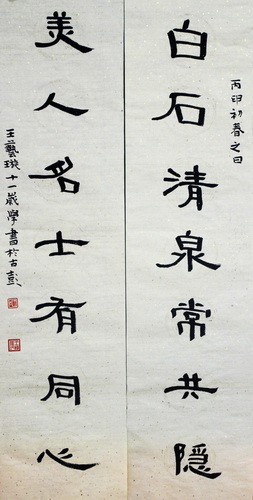 丙印初春之日
白石清泉常共隐
美人名士有同心
王藝璇十一歲學書於古彭